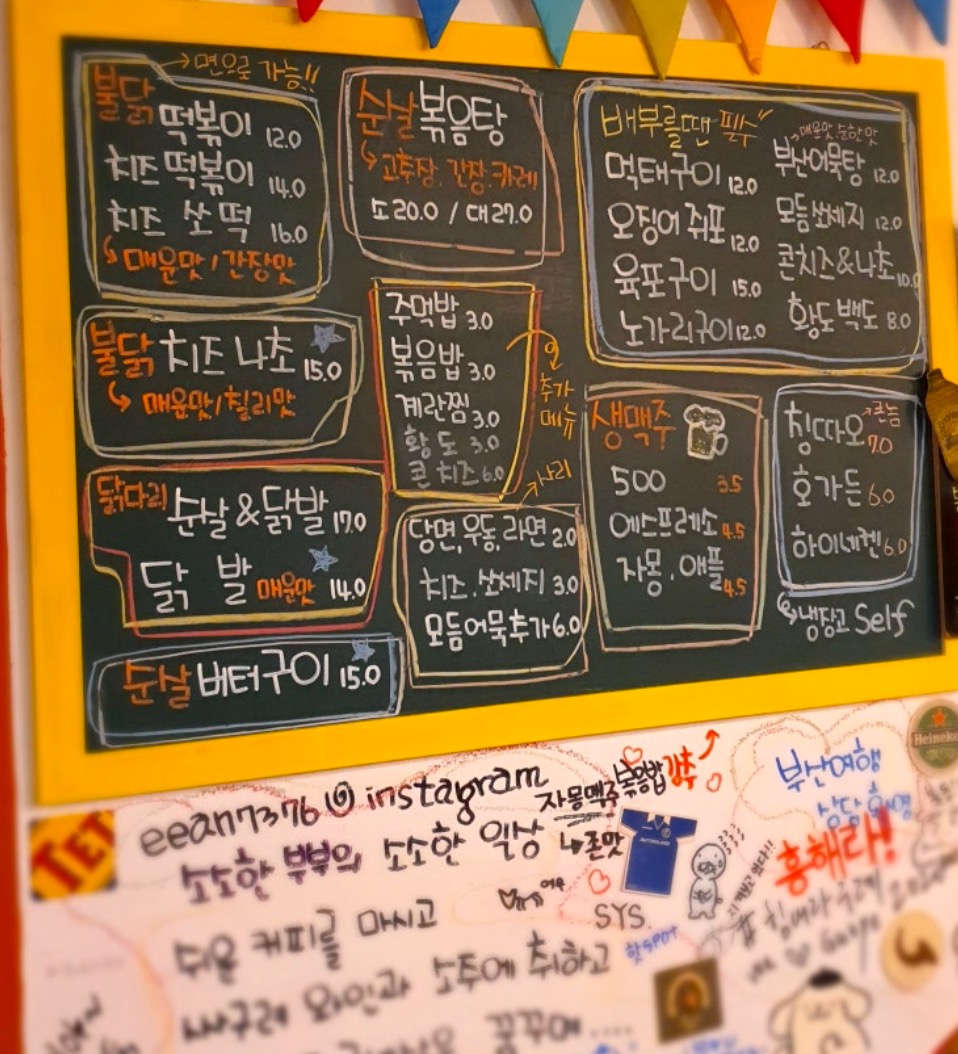 불닭 →면으로 가능!!
떡볶이 12.0
치즈 떡볶이 14.0
치즈 쏘떡 16.0
매운맛/간장맛
불닭 치즈나초 15.0
매운맛/칠리맛
닭다리 순살&닭발 17.0
닭발 매운맛 14.0
순살 버터구이 15.0
순살 볶음탕
고추장.간장.카레
소20.0 / 대27.0
주먹밥 3.0
볶음밥 3.0
계란찜 3.0
황도 3.0
콘치즈 6.0
추가
메뉴
사리
당면,우동,라면 2.0
치즈.쏘세지 3.0
모듬어묵추가 6.0
배부를땐 필수
먹태구이 12.0
오징어 쥐포 12.0
육포구이 15.0
노가리구이 12.0
매운맛.순한맛
부산어묵탕 12.0
모듬쏘세지 12.0
콘치즈&나초 10.0
황도백도 8.0
생맥주
500 3.5
에스프레소 4.5
자몽.애플 4.5
칭따오 큰놈 7.0
호가든 6.0
하이네켄 6.0
냉장고 Self
eean7376 instagram
소소한 부부의 소소한 일상
자몽맥주 볶음밥 강추
존맛
SYS.
핫SPOT
부산여행
흥해라!
Heineken
쉬운 커피를 마시고
싸구려 와인과 소주에 취하고
꿈꾸며....